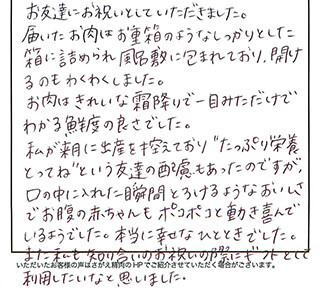 お友達にお祝いとしていただきました。
届いたお肉はお重箱のようなしっかりとした
箱に詰められ風呂敷に包まれており、開け
るのもわくわくしました。
お肉はきれいな霜降りで一目みただけで
わかる鮮度の良さでした。
私が来月に出産を控えており"たっぷり栄養
とってね"という友達の配慮もあったのですが、
口の中に入れた瞬間とろけるようなおいしさ
でお腹の赤ちゃんもポコポコと動き喜んで
いるようでした。本当に幸せなひとときでした。
また私も知り合いのお祝いの際にギフトとして
いただいたお客様の声はさがえ精肉のHPでご紹介させていただく場合がございます。
利用したいなと思いました。